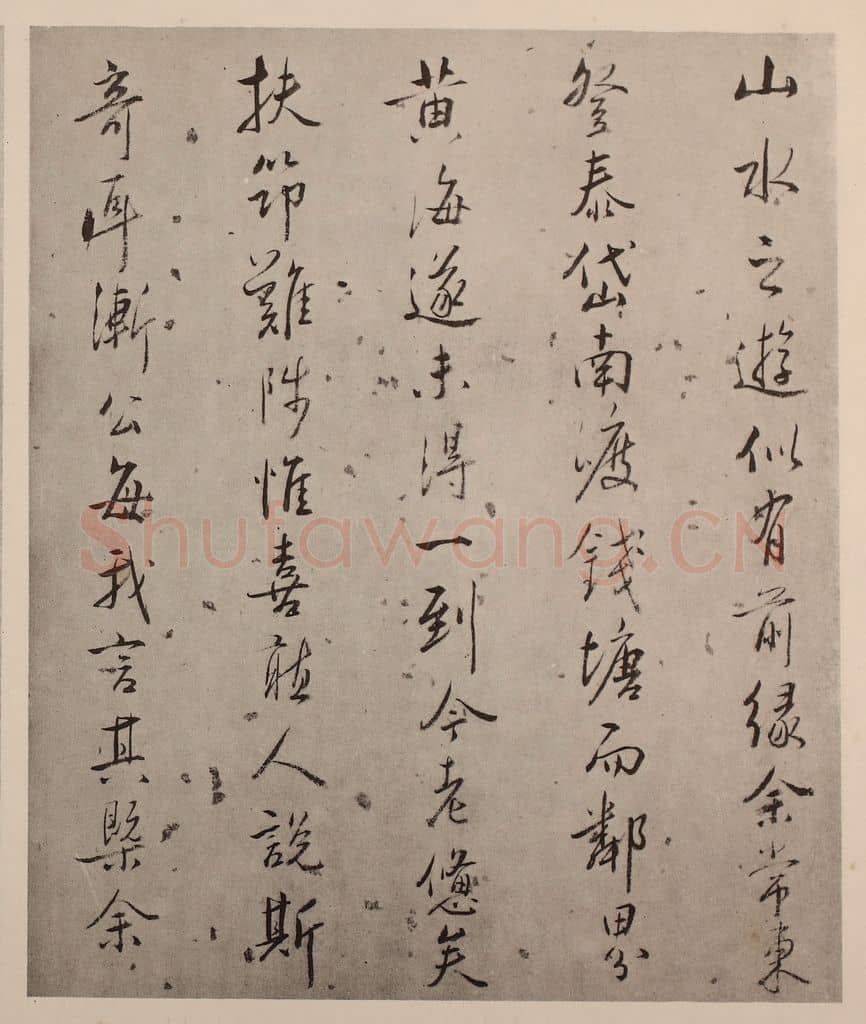 山水之遊似有前緣余常東
登泰岱南渡錢塘而鄰界
黃海遂未得一到今老憊矣
扶筇難陟惟喜聽人說斯
奇耳漸公每我言其槩余
Shufawang.CN